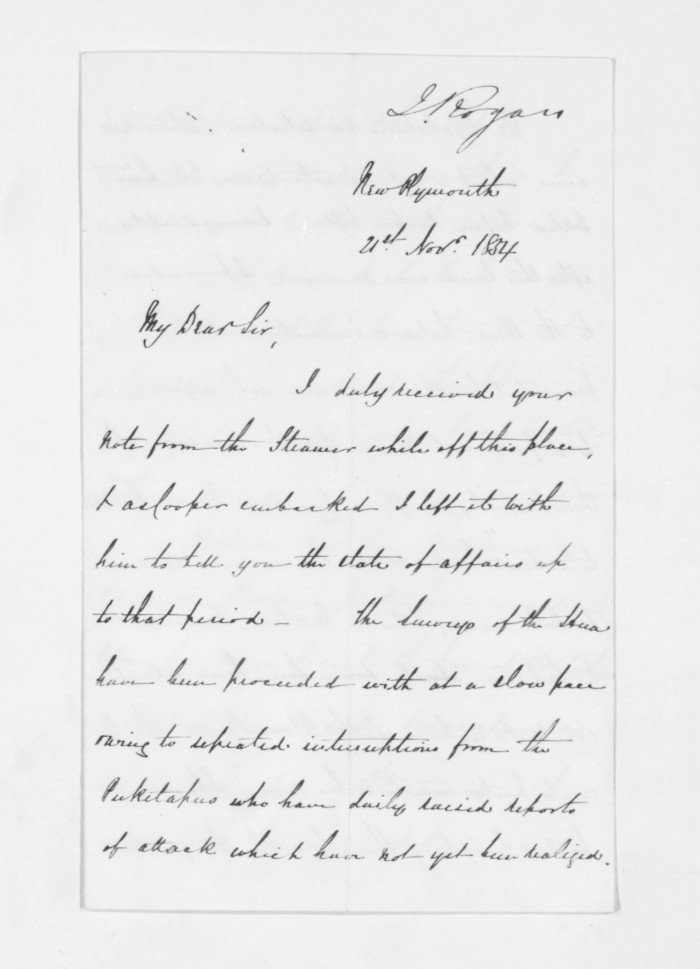 J. Rogan
New Plymouth
21st Novr. 1854
My Dear Sir,
I duly received your
note from the Steamer while off this place,
& as Cooper embarked I left it with
him to tell you the state of affairs up
to that period – the Surveys of the Hua
have been proceeded with at a slow pace
owing to repeated interruptions from the
Puketapus who have daily raised reports
of attack which have not yet been realized.